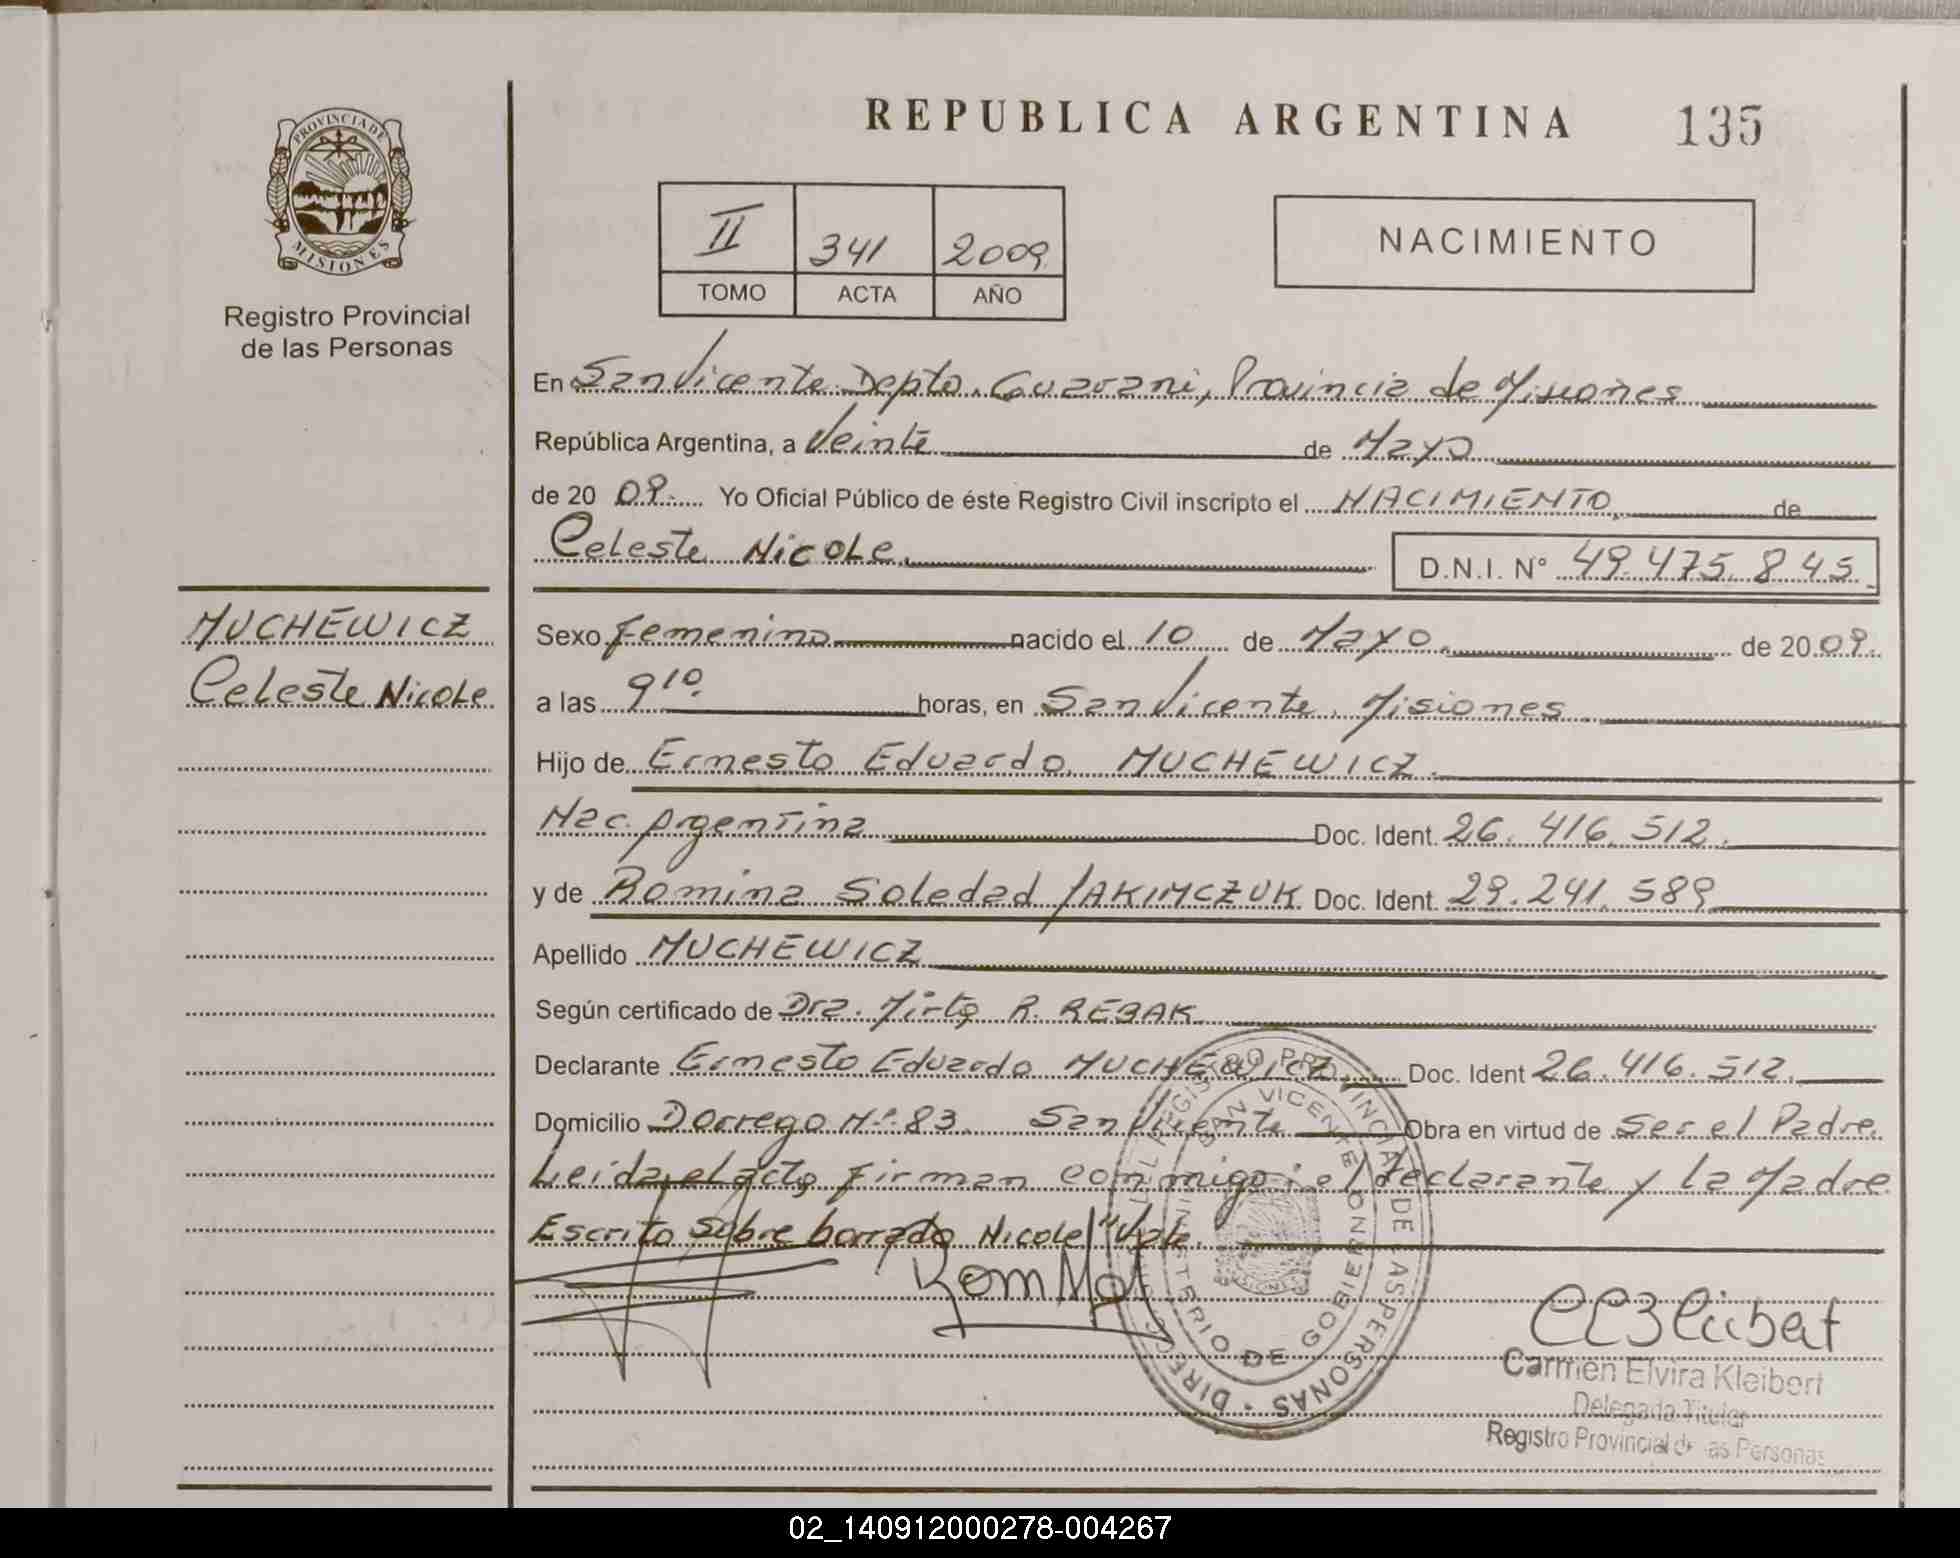 REPUBLICA ARGENTINA 135
PROVINCIA DE
MISIONES
Registro Provincial
de las Personas
II 341 2009
TOMO ACTA AÑO
NACIMIENTO
En San Vicente Depto. Guarani, Provincia de Misiones
República Argentina, a Veinte de Mayo
de 20 09. Yo Oficial Público de éste Registro Civil inscripto el NACIMIENTO de
Celeste Nicole. D.N.I. N° 49.475.845.
MUCHEWICZ
Celeste Nicole
Sexo femenino nacido el 10 de Mayo. de 20 09.
a las 9 10. horas, en San Vicente. Misiones
Hijo de Ernesto Eduardo MUCHEWICZ.
Nac. Argentina Doc. Ident. 26.416.512.
y de Romina Soledad IAKIMCZUK Doc. Ident. 29.241.589
Apellido MUCHEWICZ
Según certificado de Dra. Mirta R. REBAK
Declarante Ernesto Eduardo MUCHEWICZ Doc. Ident 26.416.512.
Domicilio Dorrego Nº 83. San Vicente Obra en virtud de Ser el Padre.
Leida el acta firman conmigo: el declarante y la Madre
Escrito sobre borrado Nicole "Vale.
REGISTRO PROVINCIAL DE LAS PERSONAS
SAN VICENTE
MINISTERIO DE GOBIERNO
Carmen Elvira Kleibert
Delegada Titular
Registro Provincial de las Personas
02_140912000278-004267